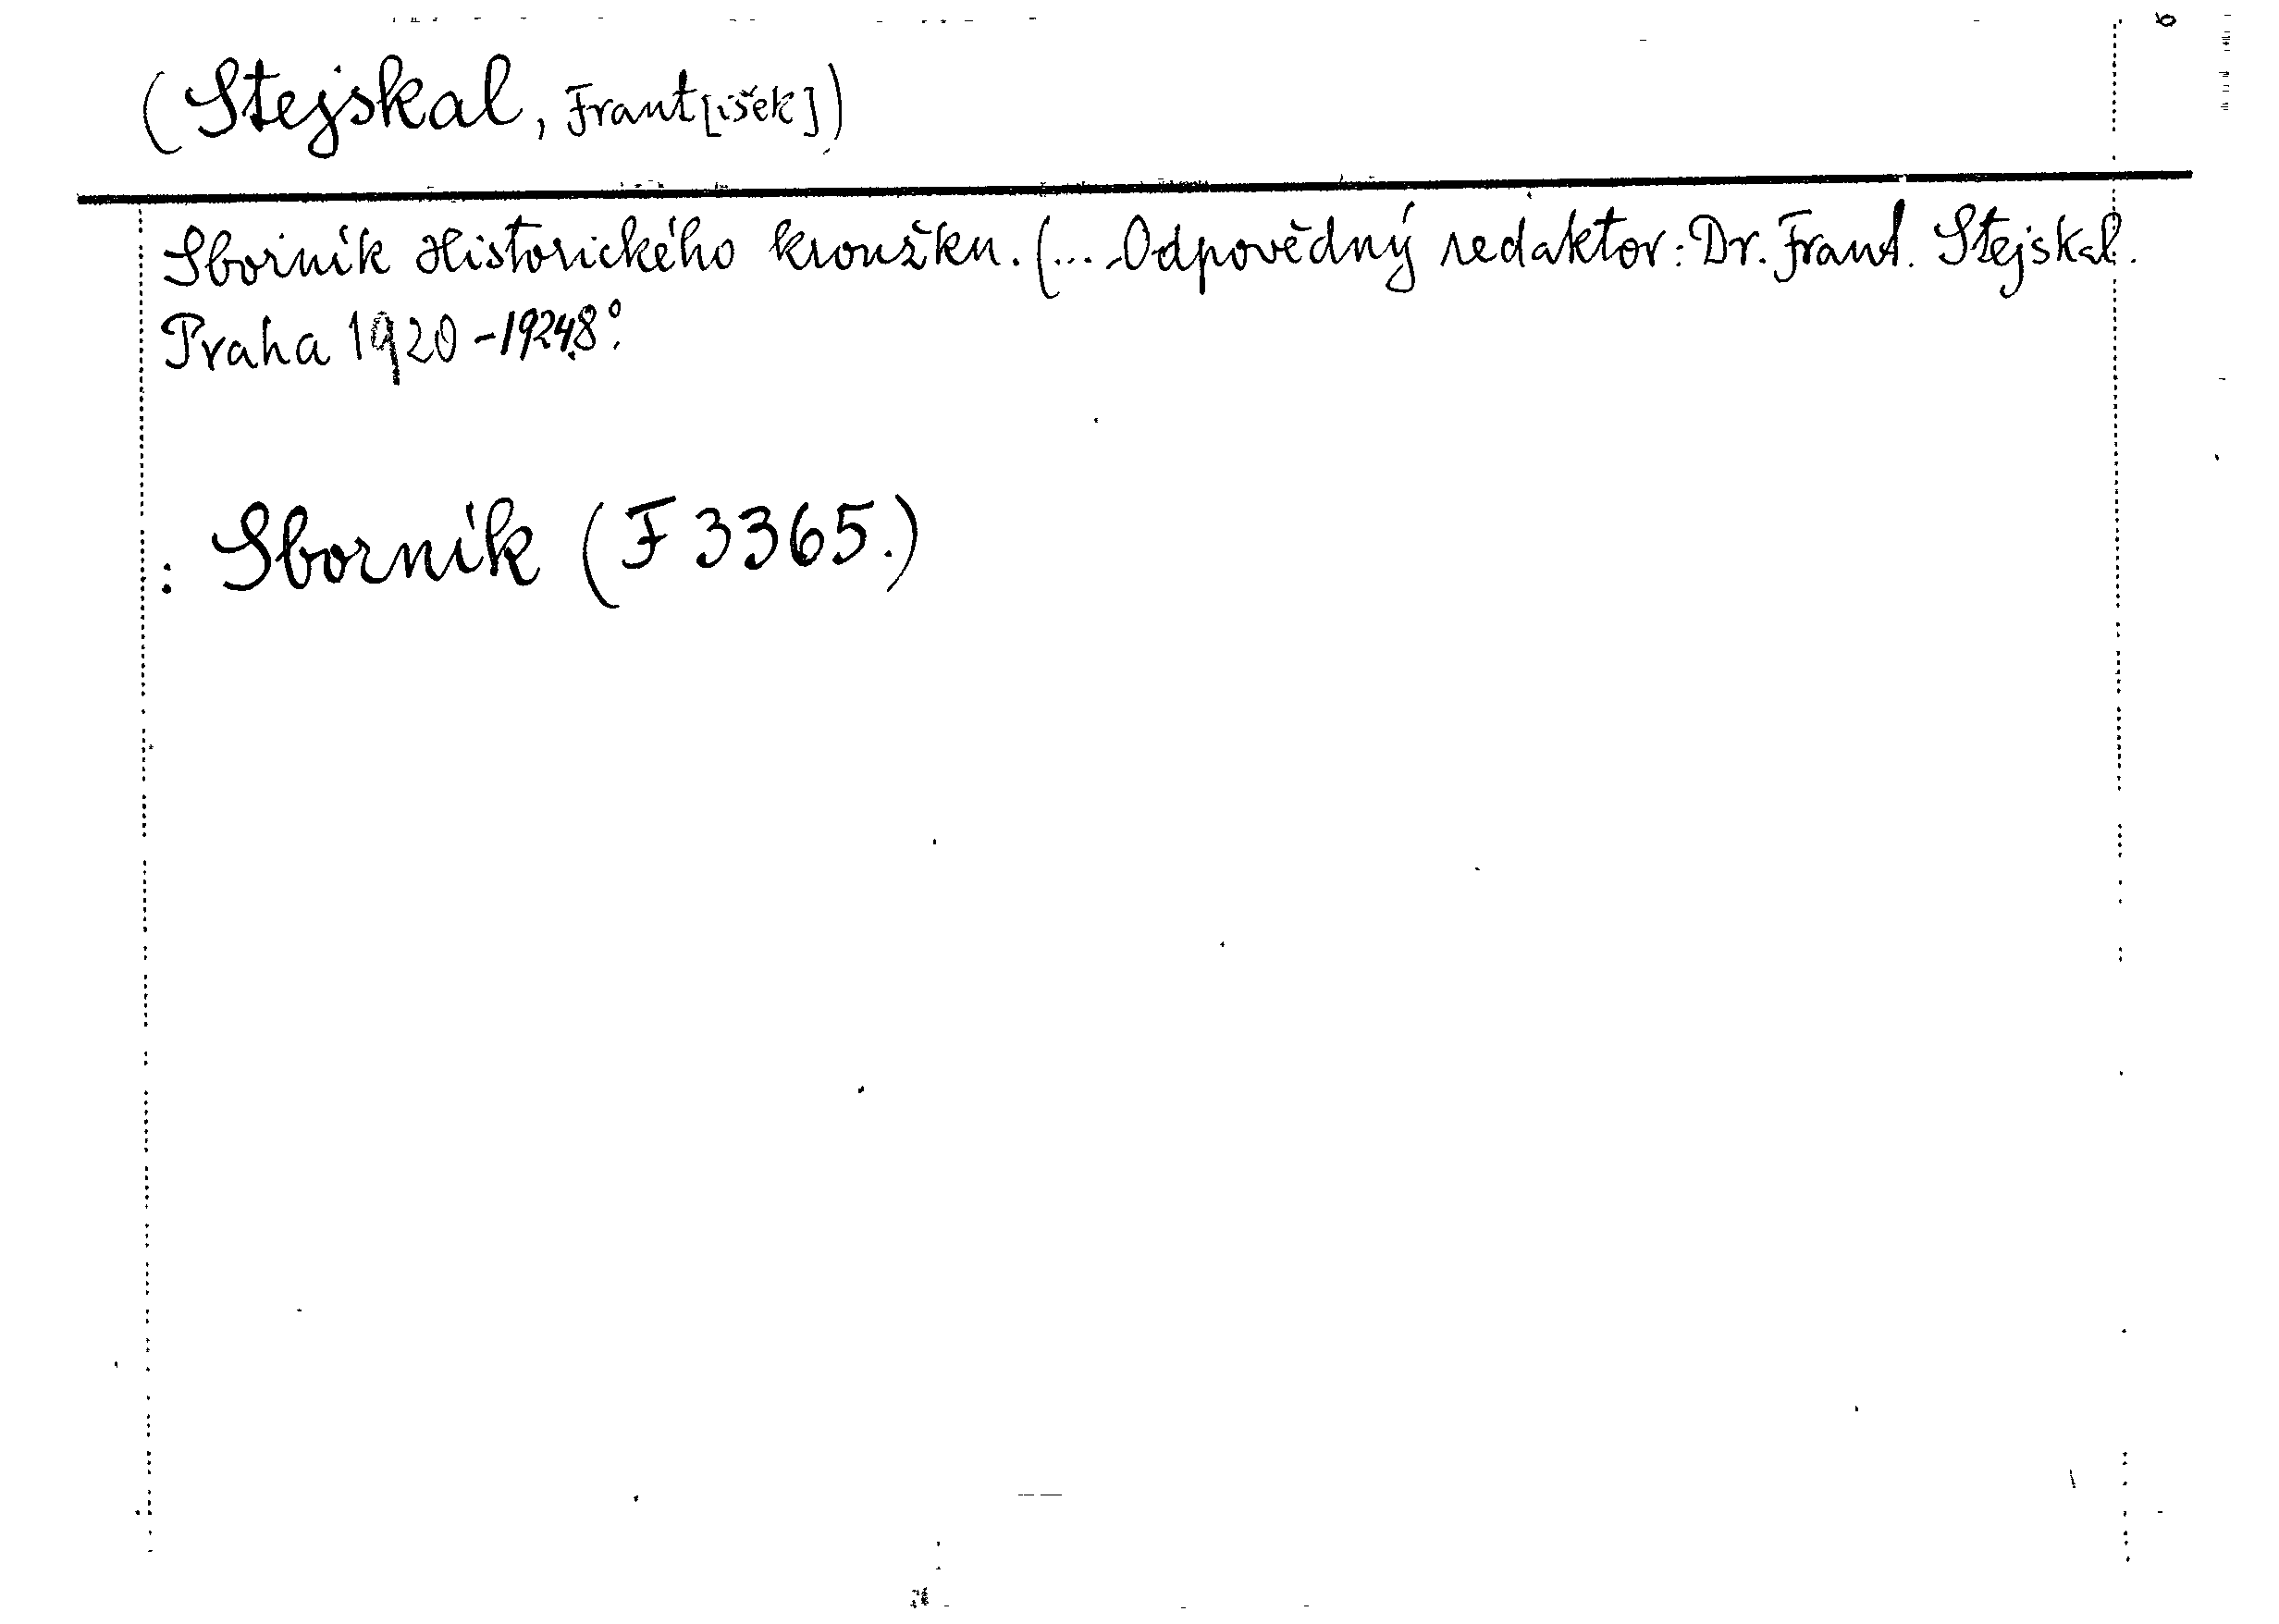 (Stejskal, Frant[išek])
Sborník Historického kroužku. (... Odpovědný redaktor: Dr. Frant. Stejskal.
Praha 1920-1924. 8°.
: Sborník (F 3365.)